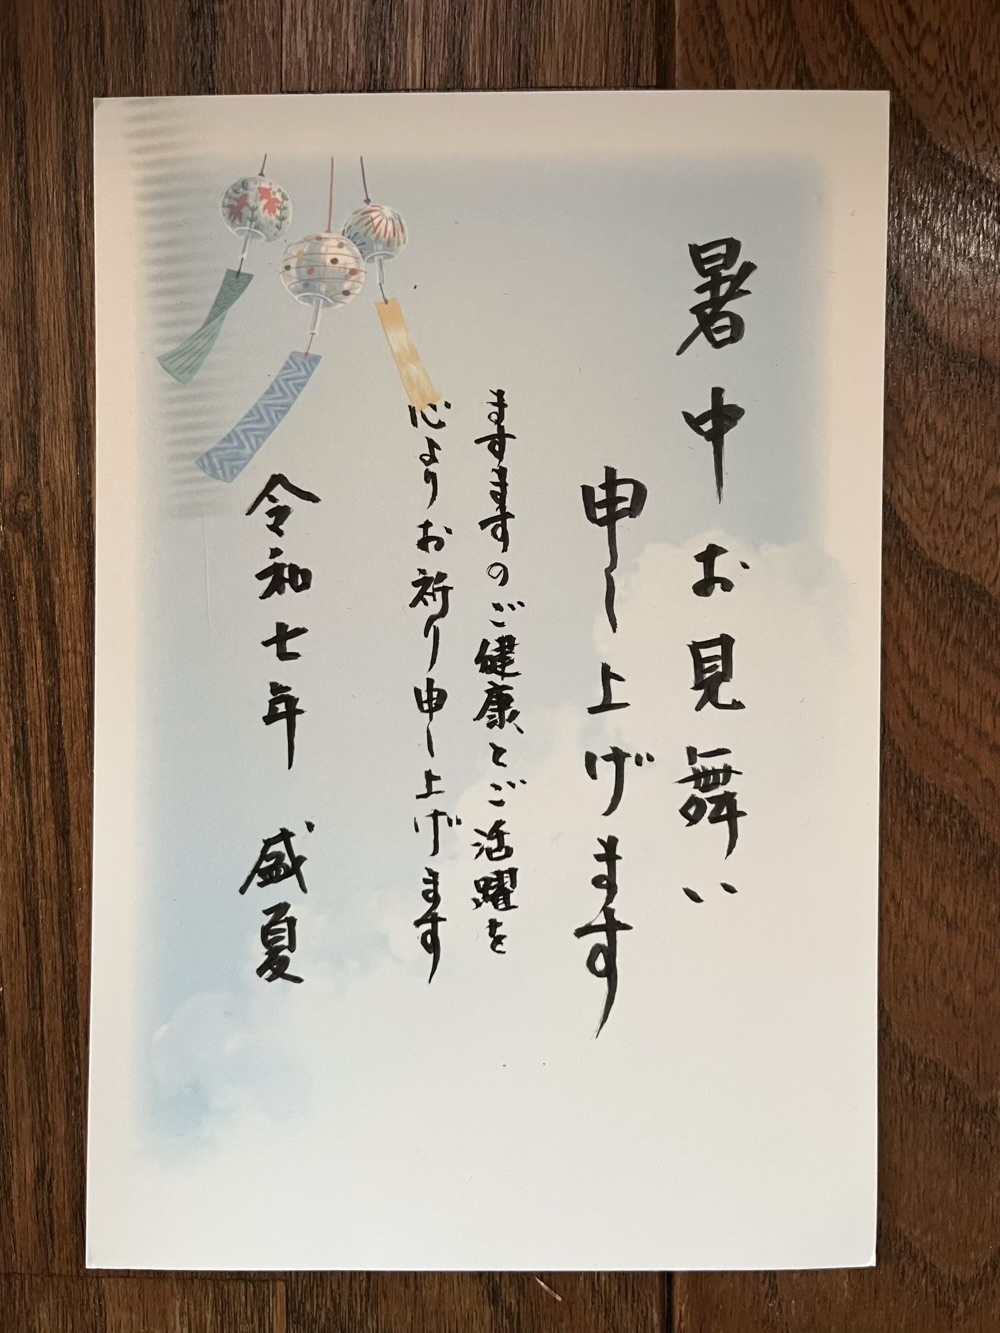 暑中お見舞い
申し上げます
ますますのご健康とご活躍を
心よりお祈り申し上げます
令和七年 盛夏